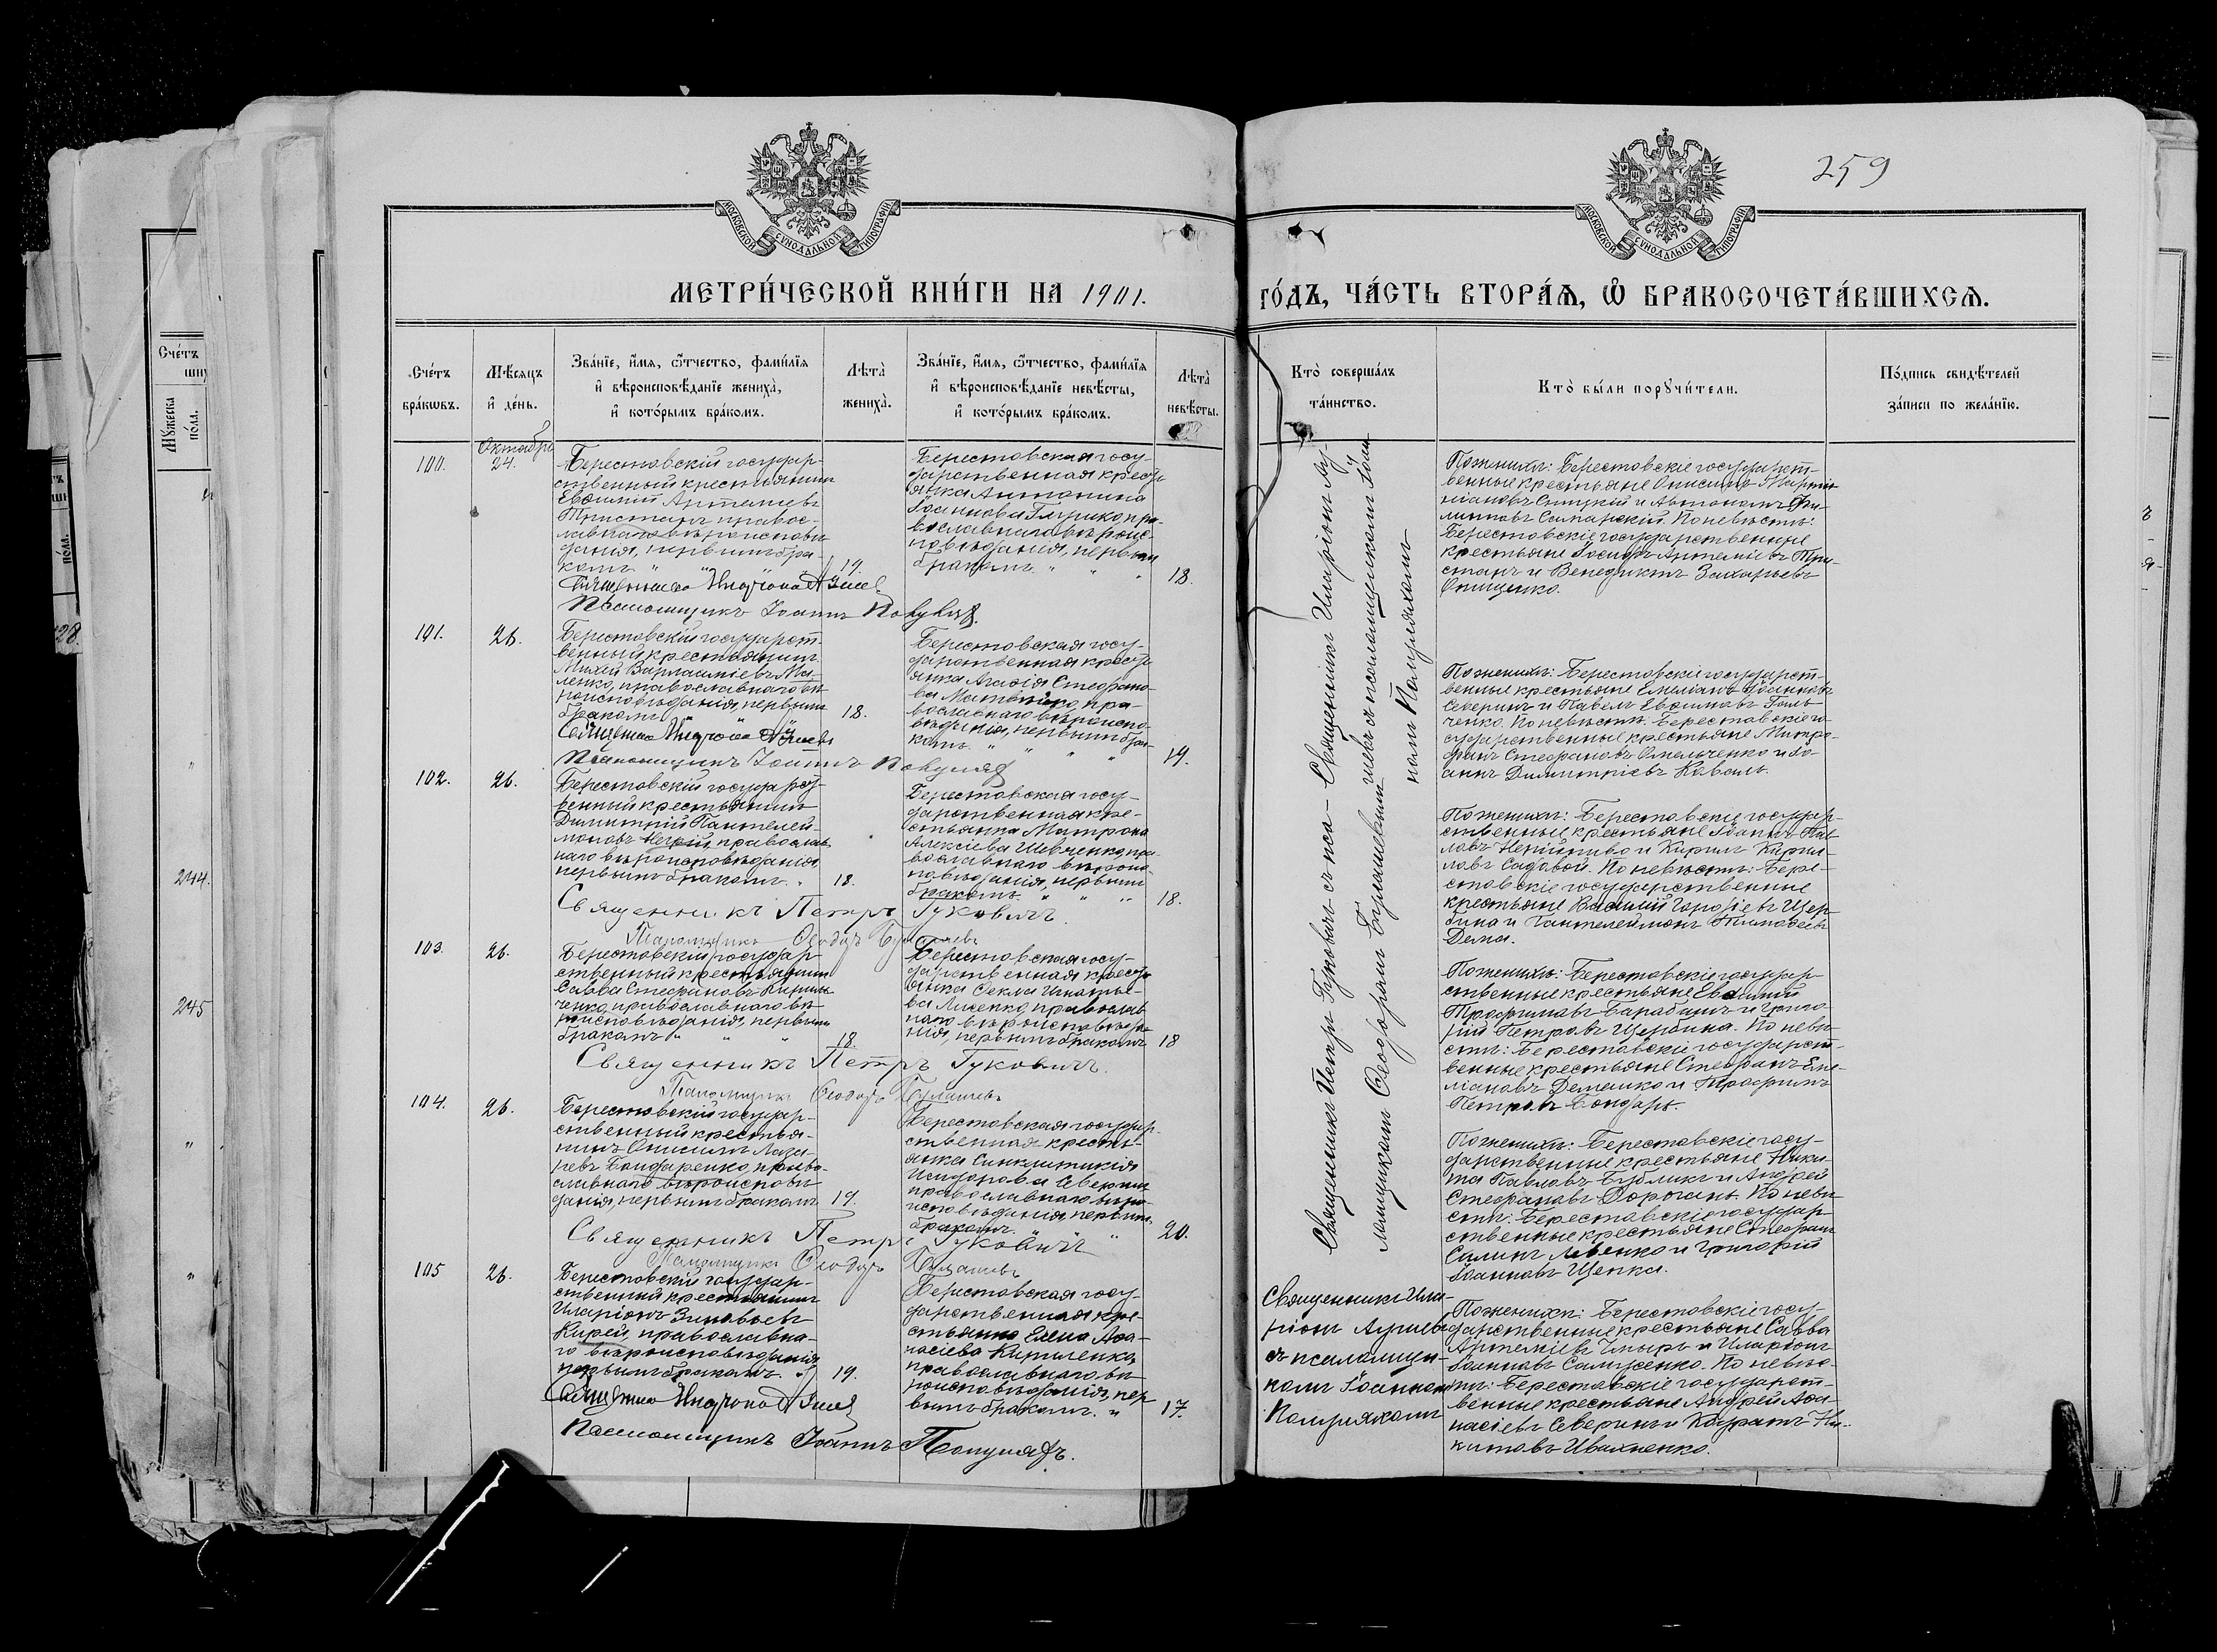 259
МОСКОВСКОЙ СѴНОДАЛЬНОЙ ТИПОГРАФІИ
МОСКОВСКОЙ СѴНОДАЛЬНОЙ ТИПОГРАФІИ
МЕТРИ́ЧЕСКОЙ КНИ́ГИ НА 1901.
ГО́ДЪ, ЧА́СТЬ ВТОРА́Ѧ, Ѽ БРАКОСОЧЕТА́ВШИХСѦ.
Сче́тъ
бра́кѡвъ.
Мѣ́сяцъ
и҆ де́нь.
Зва́нїе, и҆́мѧ, ѻ҆́тчество, фами́лїѧ
и҆ вѣроисповѣ́данїе жениха̀,
и҆ кото́рымъ бра́комъ.
Лѣта̀
жениха̀.
Зва́нїе, и҆́мѧ, ѻ҆́тчество, фами́лїѧ
и҆ вѣроисповѣ́данїе невѣ́сты,
и҆ кото́рымъ бра́комъ.
Лѣта̀
невѣ́сты.
Кто̀ соверша́лъ
та́инство.
Кто̀ бы́ли порꙋчи́тели.
По́дпись свидѣ́телей
за́писи по жела́нїю.
Октября
100.
24.
Берестовскій государ-
ственный крестьянинъ
Евѳимій Артемьевъ
Тристанъ правос-
лавнаго вѣроисповѣ-
данія, первымъ бра-
комъ " "
19.
Берестовская госу-
дарственная кресть-
янка Антонина
Іоаннова пра-
вославнаго вѣроис-
повѣданія, первымъ
бракомъ. " " "
18.
По женихѣ: Берестовскіе государст-
венные крестьяне Онисимъ Марти-
ніановъ и Автономъ Фи-
липповъ Самарскій. По невѣстѣ:
Берестовскіе государственные
крестьяне Іосифъ Артеміевъ Три-
станъ и Венедиктъ Захарьевъ
Онищенко.
Псаломщикъ Іоаннъ
101.
26.
Берестовскій государст-
венный крестьянинъ
Михей Варламіевъ Ма-
ленко, православнаго вѣ-
роисповѣданія, первымъ
бракомъ " " "
18.
Берестовская госу-
дарственная кресть-
янка Агафія Стефано-
ва пра-
вославнаго вѣроиспо-
вѣданія, первымъ бра-
комъ. " " "
19.
По женихѣ: Берестовскіе государст-
венные крестьяне Емеліанъ Іоанновъ
Северинъ и Павелъ Евѳимовъ Галь-
ченко. По невѣстѣ: Берестовскіе го-
сударственные крестьяне Митро-
фанъ Стефановъ Омельченко и Іо-
аннъ Димитріевъ Коваль.
Псаломщикъ Іоаннъ
102.
26.
Берестовскій государст-
венный крестьянинъ
Димитрій Пантелей-
моновъ православ-
наго вѣроисповѣданія,
первымъ бракомъ. "
18.
Берестовская госу-
дарственная кре-
стьянка Матрона
Алексіева Шевченко, пра-
вославнаго вѣроис-
повѣданія, первымъ
бракомъ. " " "
18.
По женихѣ: Берестовскіе государ-
ственные крестьяне Іоаннъ Пав-
ловъ Непійпиво и Кирилъ Кирил-
ловъ Садовой. По невѣстѣ: Бере-
стовскіе государственные
крестьяне Василій Георгіевъ Щер-
бина и Пантелеймонъ Тимоѳеевъ
Дема.
Священникъ Петръ Гуковичъ.
Псаломщикъ Ѳеодоръ Бугашевъ
103.
26.
Берестовскій государ-
ственный крестьянинъ
Савва Стефановъ Кирил-
ченко, православнаго вѣ-
роисповѣданія, первымъ
бракомъ " " "
18.
Берестовская госу-
дарственная кресть-
янка Ѳекла Игнатье-
ва Лисенко, православ-
наго вѣроисповѣда-
нія, первымъ бракомъ
18
По женихѣ: Берестовскіе государ-
ственные крестьяне Евѳимій
Трофимовъ Барабашъ и Григо-
рій Петровъ Щербина. По невѣ-
стѣ: Берестовскіе государст-
венные крестьяне Стефанъ Еме-
ліановъ Демешко и Трофимъ
Петровъ Бондарь.
Священникъ Петръ Гуковичъ.
Псаломщикъ Ѳеодоръ Бугашевъ
104.
26.
Берестовскій государ-
ственный крестья-
нинъ Онисимъ Лаза-
ревъ Бондаренко, право-
славнаго вѣроисповѣ-
данія, первымъ бракомъ
19.
Берестовская государ-
ственная кресть-
янка Синклитикія
Исидорова Северинъ
православнаго вѣро-
исповѣданія, первымъ
бракомъ. " "
20.
По женихѣ: Берестовскіе госу-
дарственные крестьяне Ники-
та Павловъ Бубликъ и Андрей
Стефановъ Дорогань. По невѣ-
стѣ: Берестовскіе государ-
ственные крестьяне Стефанъ
Левенко и Григорій
Іоанновъ Щепка.
Священникъ Петръ Гуковичъ
Псаломщикъ Ѳеодоръ Бугашевъ
105
26.
Берестовскій государ-
ственный крестьянинъ
Иларіонъ Зиновьевъ
Кирей, православна-
го вѣроисповѣданія,
первымъ бракомъ. "
19.
Берестовская госу-
дарственная кре-
стьянка Елена Аѳа-
насіева Кириленко,
православнаго вѣ-
роисповѣданія, пер-
вымъ бракомъ. "
17.
Священникъ Ила-
ріонъ
съ псаломщи-
комъ Іоанномъ
По женихѣ: Берестовскіе госу-
дарственные крестьяне Савва
Артеміевъ и Иларіонъ
Іоанновъ Самусенко. По невѣс-
тѣ: Берестовскіе государст-
венные крестьяне Андрей Аѳа-
насіевъ Северинъ и Кодратъ Ни-
китовъ Ивахненко.
Псаломщикъ Іоаннъ
Священники Петръ Гуковичъ съ пса-
ломщикомъ Ѳеодоромъ Бугашевымъ
Священникъ Иларіонъ
съ псаломщикомъ Іоан-
номъ
Сче́тъ
Мꙋ́жеска
по́ла.
244.
245
28